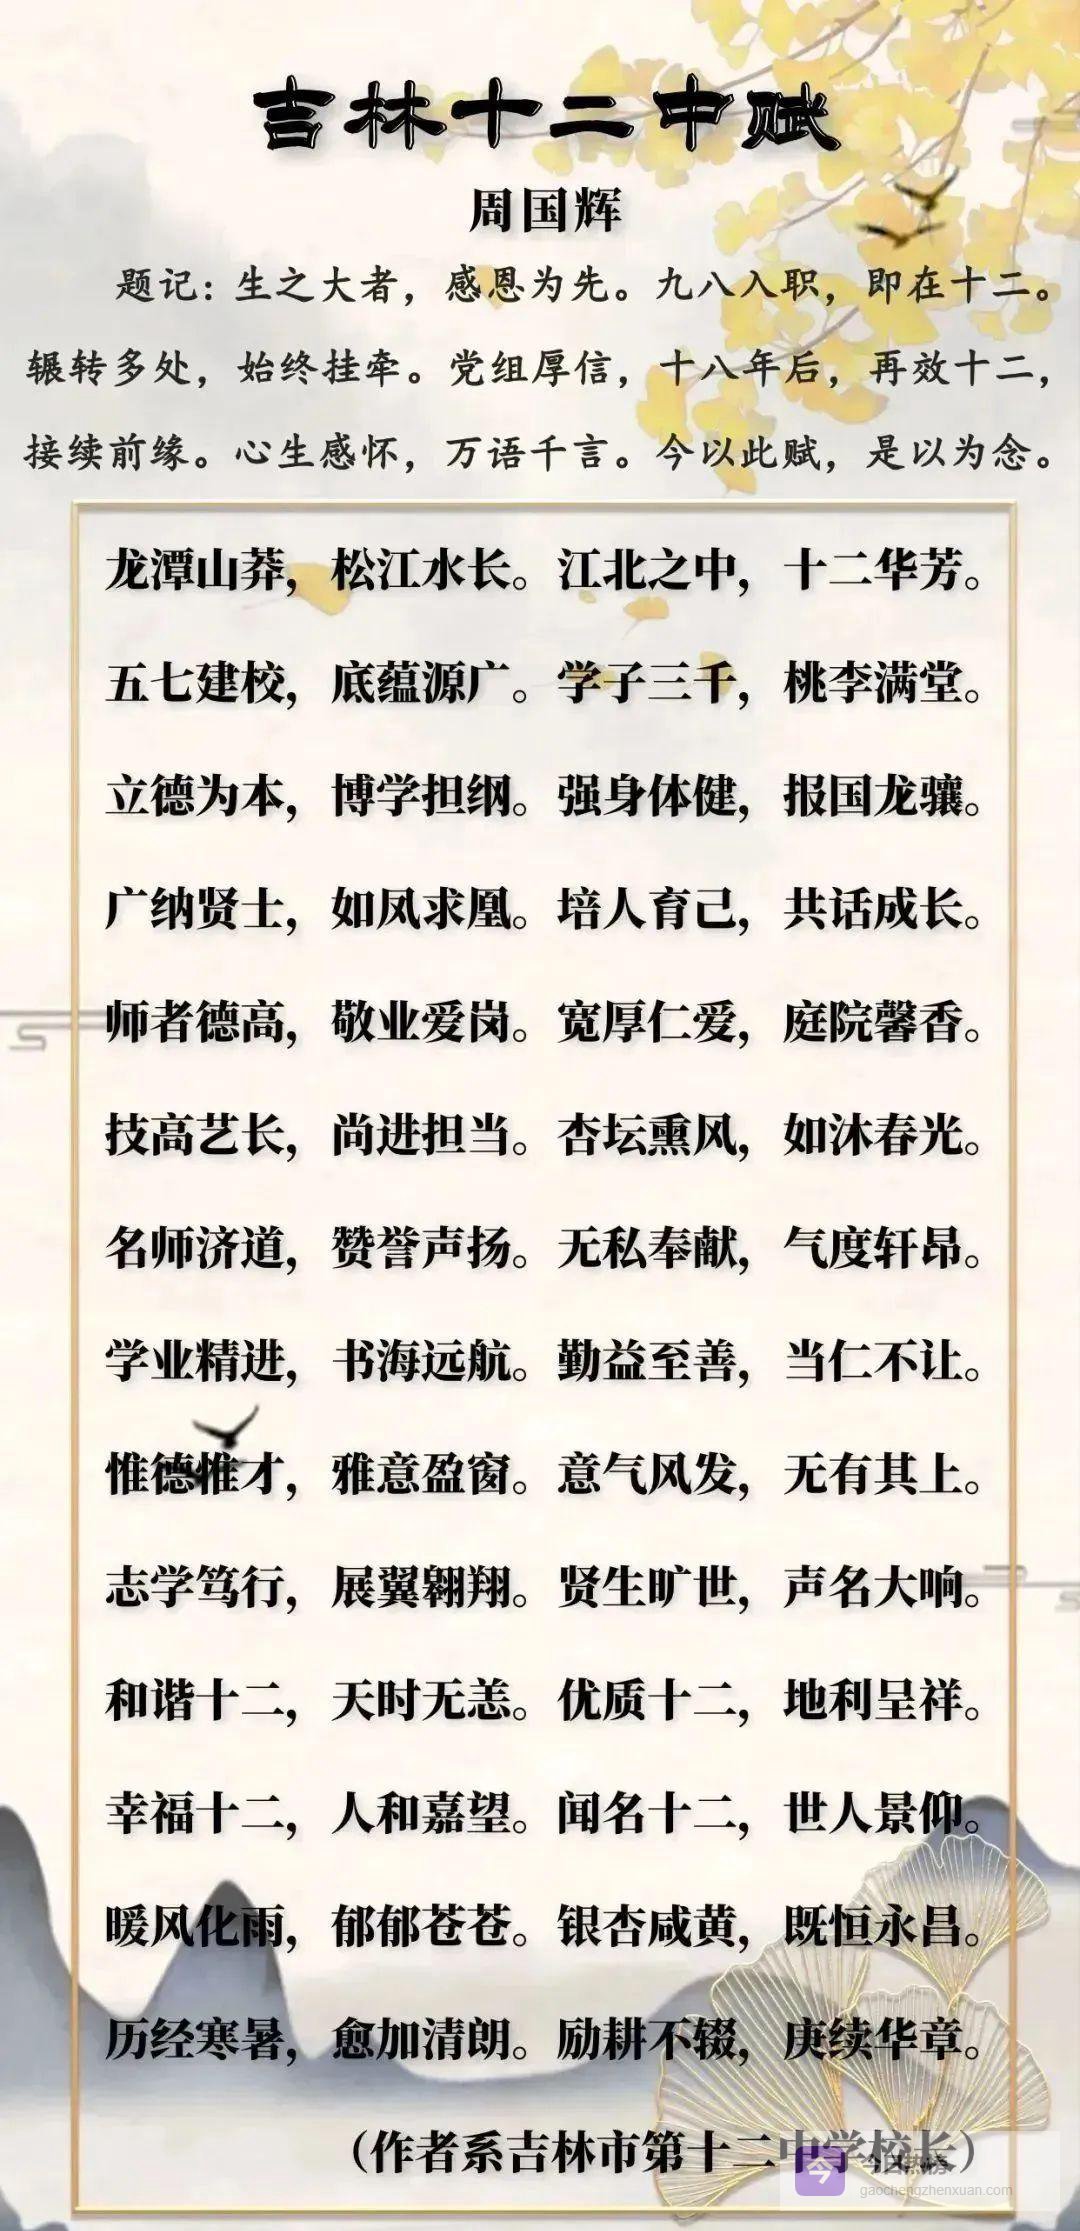 吉林十二中赋
周国辉
题记：生之大者，感恩为先。九八入职，即在十二。
辗转多处，始终挂牵。党组厚信，十八年后，再效十二，
接续前缘。心生感怀，万语千言。今以此赋，是以为念。
龙潭山莽，松江水长。江北之中，十二华芳。
五七建校，底蕴源广。学子三千，桃李满堂。
立德为本，博学担纲。强身体健，报国龙骧。
广纳贤士，如凤求凰。培人育己，共话成长。
师者德高，敬业爱岗。宽厚仁爱，庭院馨香。
技高艺长，尚进担当。杏坛熏风，如沐春光。
名师济道，赞誉声扬。无私奉献，气度轩昂。
学业精进，书海远航。勤益至善，当仁不让。
惟德惟才，雅意盈窗。意气风发，无有其上。
志学笃行，展翼翱翔。贤生旷世，声名大响。
和谐十二，天时无恙。优质十二，地利呈祥。
幸福十二，人和嘉望。闻名十二，世人景仰。
暖风化雨，郁郁苍苍。银杏咸黄，既恒永昌。
历经寒暑，愈加清朗。励耕不辍，庚续华章。
（作者系吉林市第十二中学校长）
今 今日热榜
gaochengzhenxuan.com